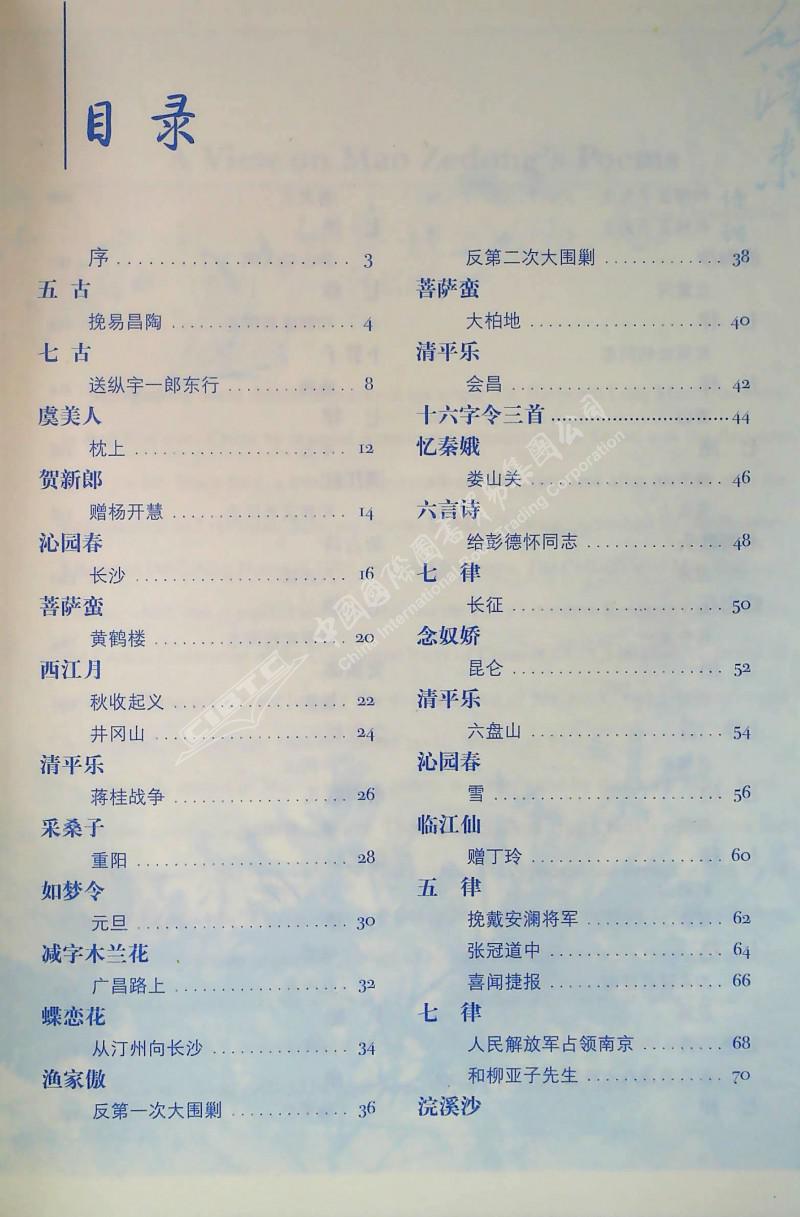 毛泽东
目录
A View on Mao Zedong's Poems
序 .......................... 3
五 古
挽易昌陶 .................... 4
七 古
送纵宇一郎东行 .............. 8
虞美人
枕上 ........................ 12
贺新郎
赠杨开慧 .................... 14
沁园春
长沙 ........................ 16
菩萨蛮
黄鹤楼 ...................... 20
西江月
秋收起义 .................... 22
井冈山 ...................... 24
清平乐
蒋桂战争 .................... 26
采桑子
重阳 ........................ 28
如梦令
元旦 ........................ 30
减字木兰花
广昌路上 .................... 32
蝶恋花
从汀州向长沙 ................ 34
渔家傲
反第一次大围剿 .............. 36
反第二次大围剿 .............. 38
菩萨蛮
大柏地 ...................... 40
清平乐
会昌 ........................ 42
十六字令三首 ................ 44
忆秦娥
娄山关 ...................... 46
六言诗
给彭德怀同志 ................ 48
七 律
长征 ........................ 50
念奴娇
昆仑 ........................ 52
清平乐
六盘山 ...................... 54
沁园春
雪 .......................... 56
临江仙
赠丁玲 ...................... 60
五 律
挽戴安澜将军 ................ 62
张冠道中 .................... 64
喜闻捷报 .................... 66
七 律
人民解放军占领南京 .......... 68
和柳亚子先生 ................ 70
浣溪沙
CIBTC
中國國際圖書貿易集團公司
China International Book Trading Corporation